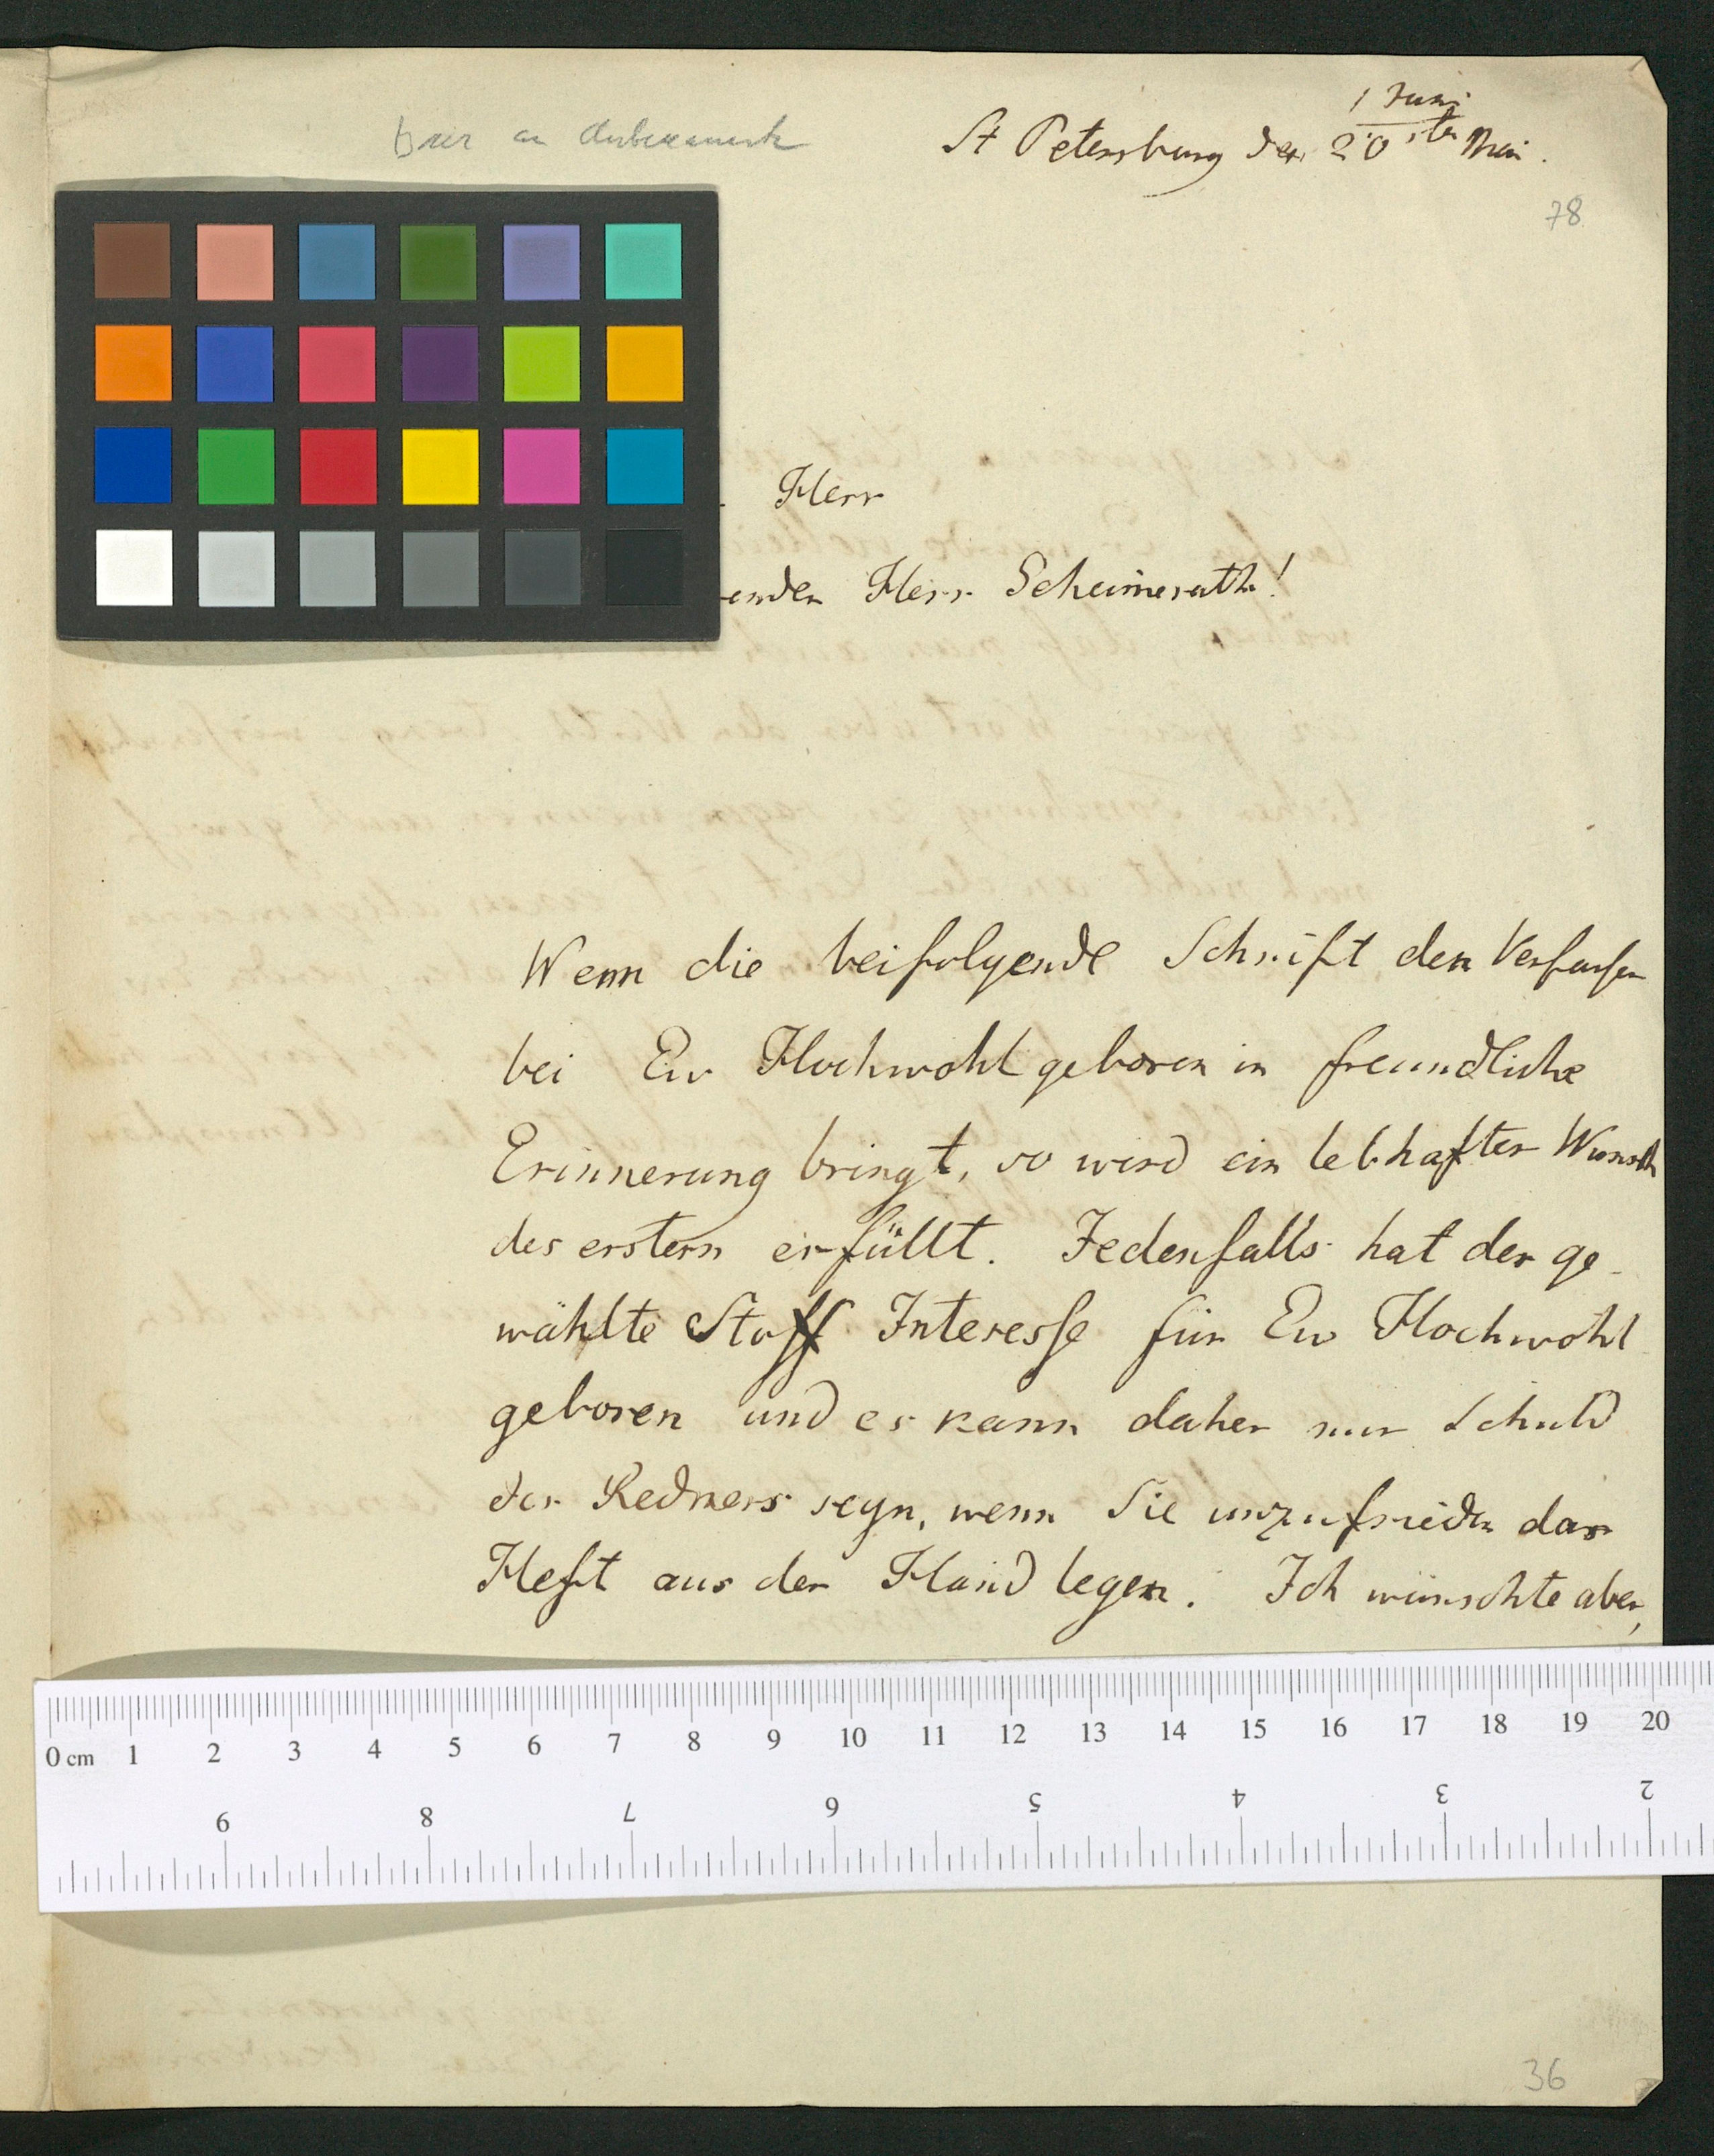 Baer an Unbekannt
1 Juni
St Petersburg den 20sten Mai.
78
Herr
enden Herr Geheimerath!
Wenn die beifolgende Schrift den Verfasser
bei Ew Hochwohlgeboren in freundliche
Erinnerung bringt, so wird ein lebhafter Wunsch
des erstern erfüllt. Jedenfalls hat der ge-
wählte Stoff Interesse für Ew Hochwohl
geboren und es kann daher nur Schuld
des Redners seyn, wenn Sie unzufrieden das
Heft aus der Hand legen. Ich wünschte aber,
0 cm 1 2 3 4 5 6 7 8 9 10 11 12 13 14 15 16 17 18 19 20
9 8 7 6 5 4 3 2
36